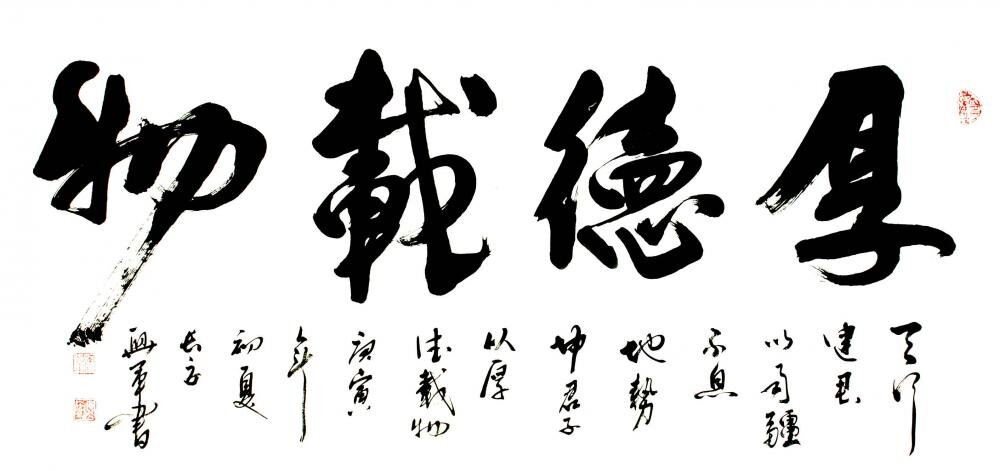 厚德載物
天行
健君
以自疆
不息
地勢
坤君子
以厚
德載物
庚寅
年
初夏
興軍書